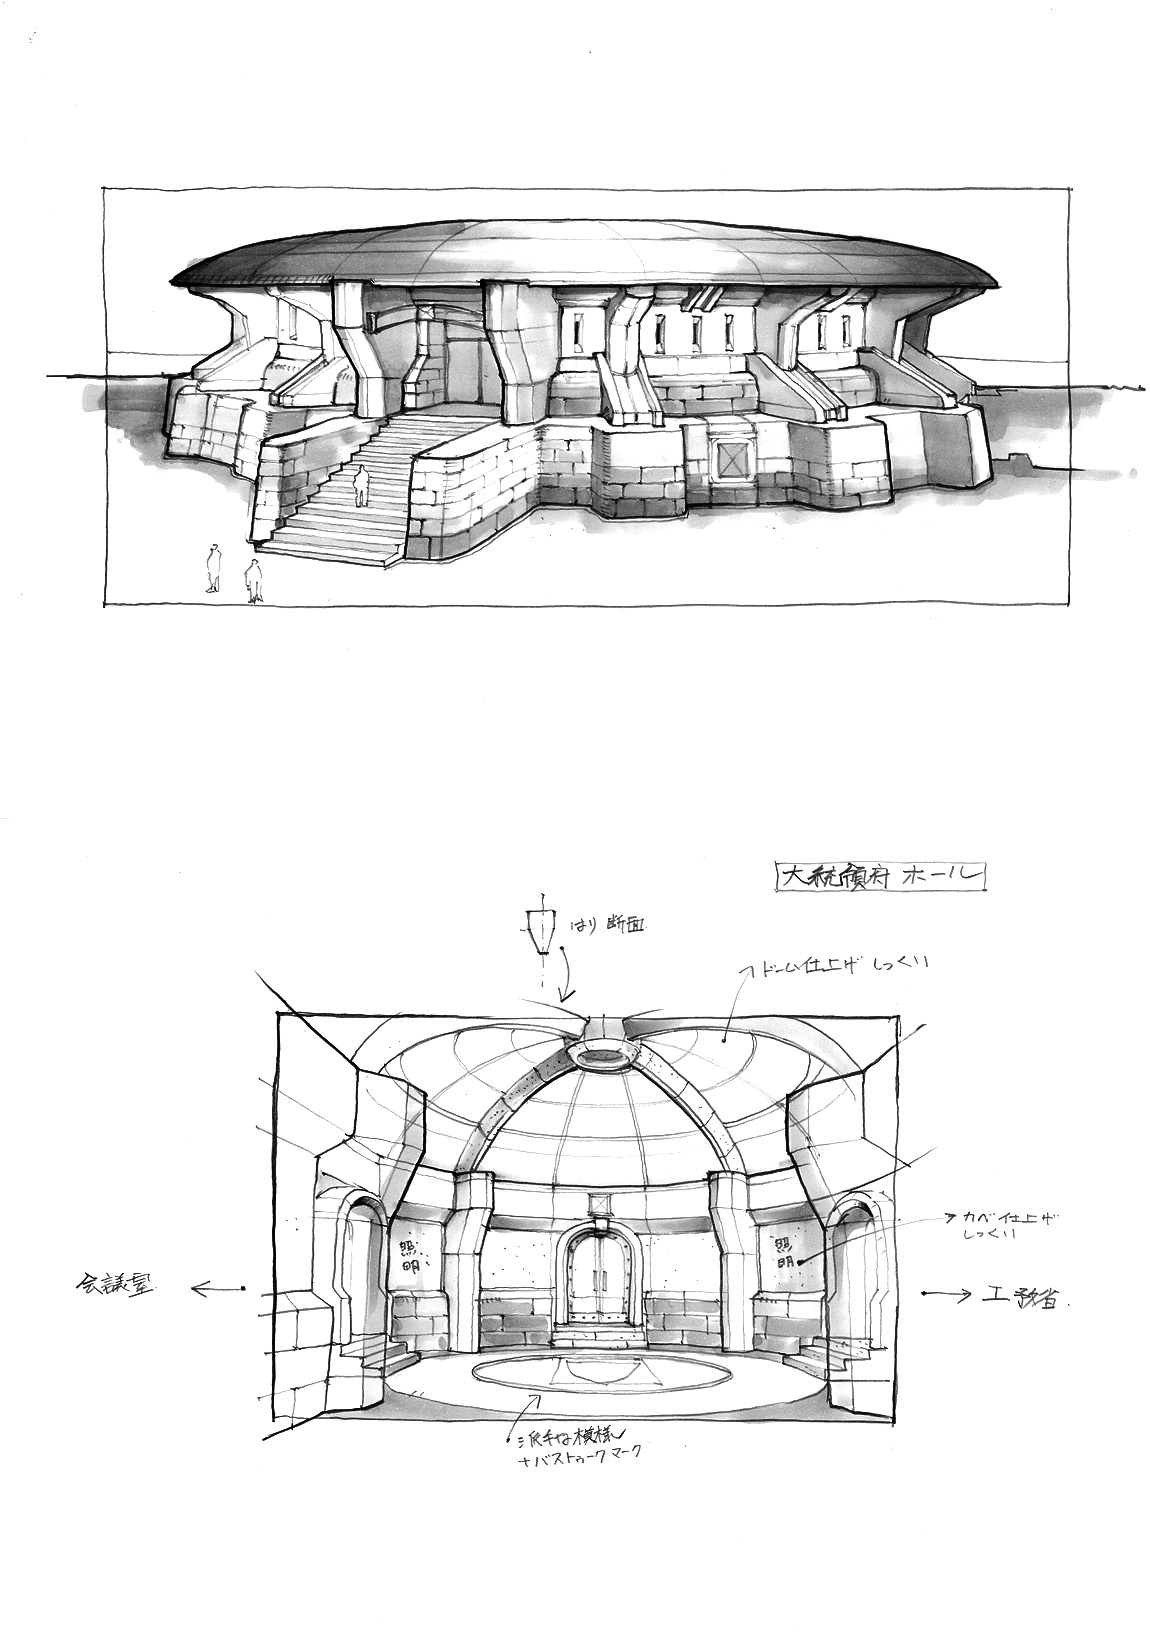 大統領府 ホール
はり 断面
ドーム仕上げ しっくい
照明
照明
カベ仕上げ
しっくい
会議室
工務省
派手な模様
+バストゥークマーク